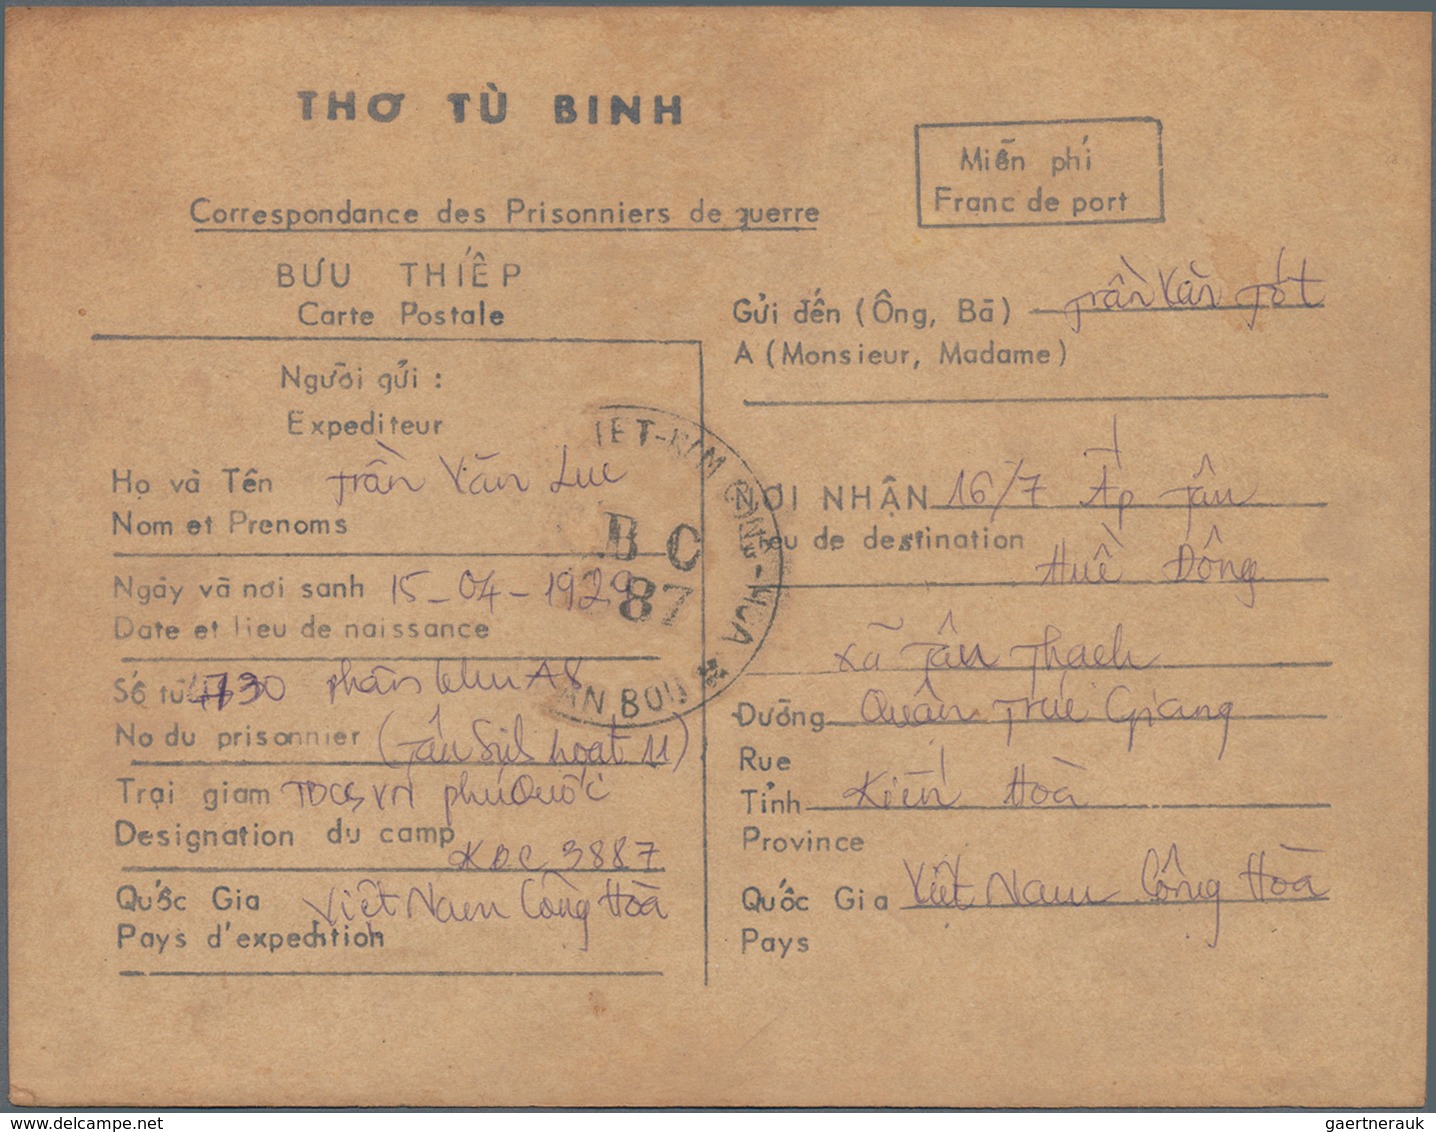 THƠ TÙ BINH
Correspondance des Prisonniers de guerre
Miễn phí
Franc de port
BƯU THIẾP
Carte Postale
Người gửi :
Expediteur
Họ và Tên Trần Văn Luc
Nom et Prenoms
Ngày và nơi sanh 15-04-1929
Date et lieu de naissance
Số tù 4730 phân khu A8
No du prisonnier (Tân Sinh hoạt 11)
Trại giam TBCS VN phú Quốc
Designation du camp
KBC 3887
Quốc Gia Việt Nam Cộng Hoà
Pays d'expedition
Gửi đến (Ông, Bà) Trần Văn Tốt
A (Monsieur, Madame)
NƠI NHẬN 16/7 Ấp Tân
Lieu de destination
Huề Đông
xã Tân Thạch
Đường Quận Trúc Giang
Rue
Tỉnh Kiến Hoà
Province
Quốc Gia Việt Nam Cộng Hoà
Pays
IET-NAM CỘNG-HOA
BC
87
AN BUU
www.delcampe.net
gaertnerauk